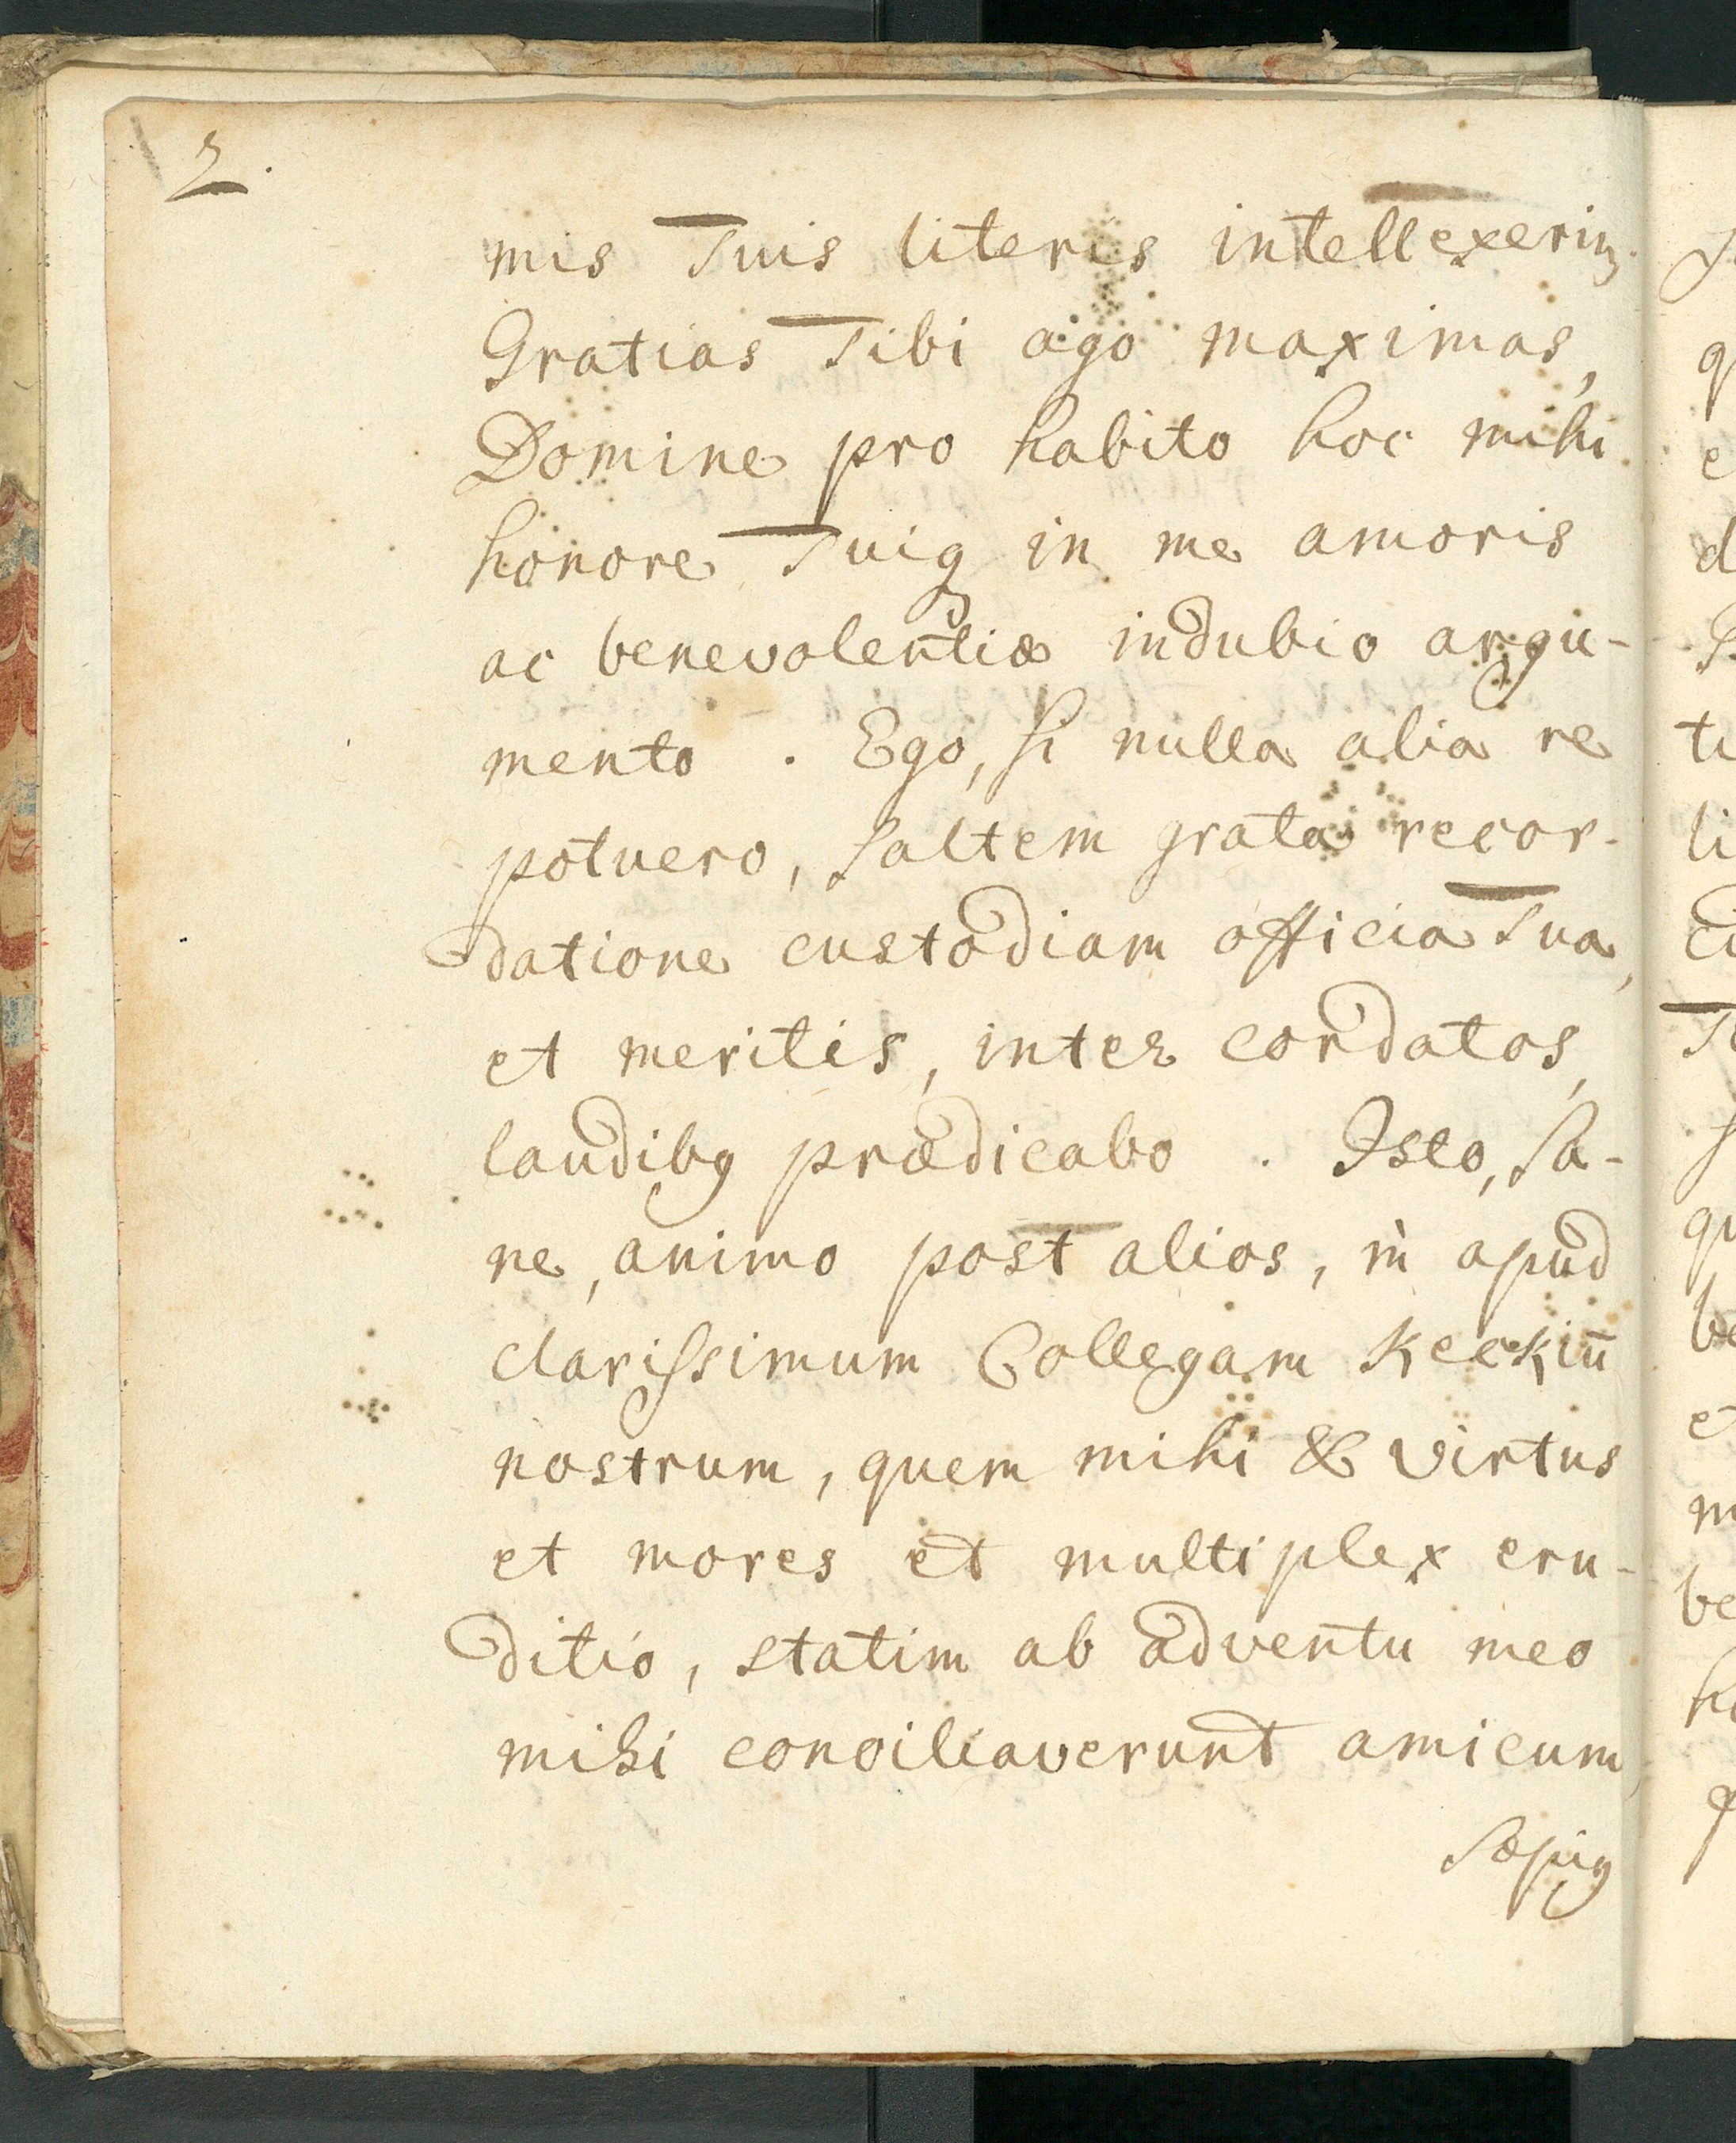 2.
mis Tuis literis intellexerim.
Gratias Tibi ago maximas,
Domine pro habito hoc mihi
honore Tuiq₃ in me amoris
ac benevolentiæ indubio argu-
mento. Ego, si nulla alia re
potuero, saltem grata recor-
datione custodiam officia Tua,
et meritis, inter cordatos,
laudibꝰ prædicabo. Isto, sa-
ne, animo post alios, in apud
clarissimum Collegam Keckiū
nostrum, quem mihi & virtus
et mores et multiplex eru-
ditio, statim ab adventu meo
mihi conciliaverunt amicum,
Sæpiꝰ